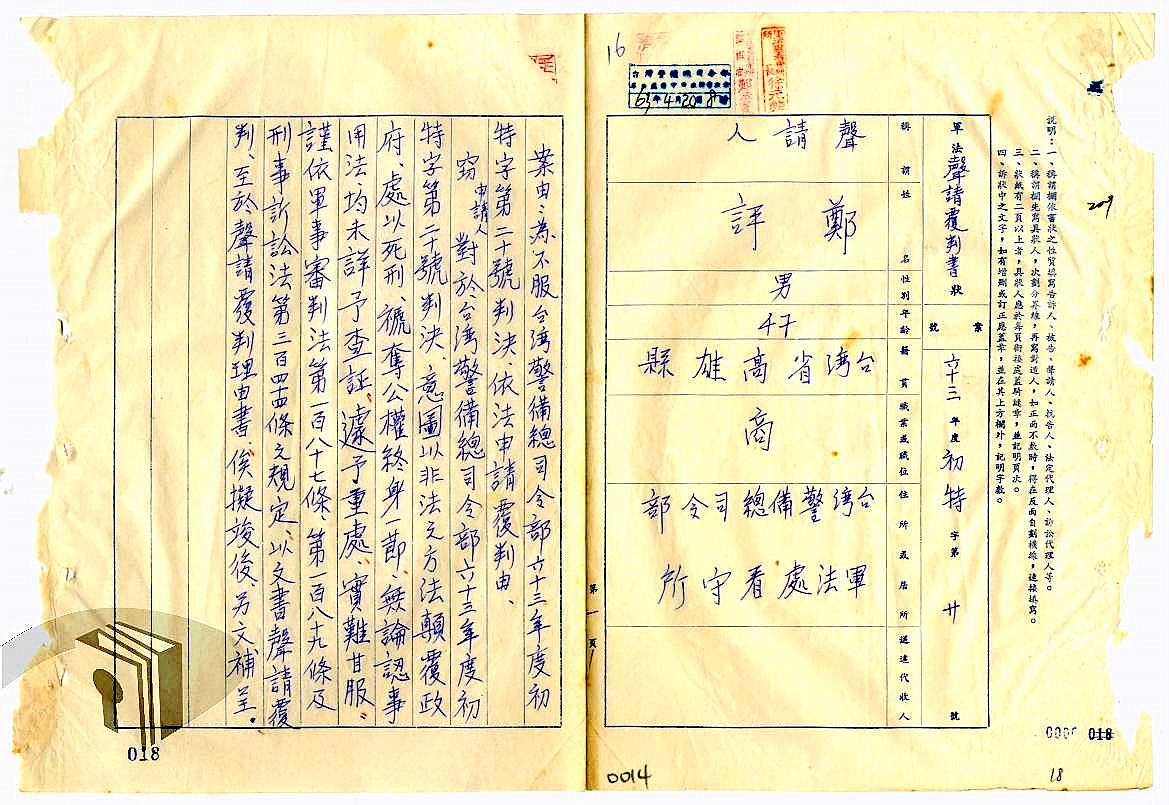 說明：一、稱謂欄依書狀之性質填寫告訴人、被告、聲請人、抗告人、法定代理人、訴訟代理人等。
二、稱謂欄先寫具狀人，次劃分界線，再寫對造人，如正面不敷時，得在反面自劃橫線，連接填寫。
三、狀紙有二頁以上者，具狀人應於每頁銜接處蓋騎縫章，並記明頁次。
四、訴狀中之文字，如有增刪或訂正應蓋章，並在其上方欄外，記明字數。
209
軍法聲請覆判書狀
案號
六十三年度初特字第廿號
稱謂
姓名
性別
年齡
籍貫
職業或職位
住所或居所
送達代收人
聲請人
鄭評
男
47
台灣省高雄縣
商
台灣警備總司令部
軍法處看守所
16
63年4月20日
第一頁
1
案由：為不服台灣警備總司令部六十三年度初
特字第二十號判決、依法申請覆判由、
竊申請人對於台灣警備總司令部六十三年度初
特字第二十號判決、意圖以非法之方法顛覆政
府、處以死刑、褫奪公權終身一節、無論認事
用法均未詳予查証、遽予重處、實難甘服、
謹依軍事審判法第一百八十七條、第一百八十九條及
刑事訴訟法第三百四十四條之規定、以文書聲請覆
判、至於聲請覆判理由書俟擬竣後、另文補呈。
018
0014
018
18